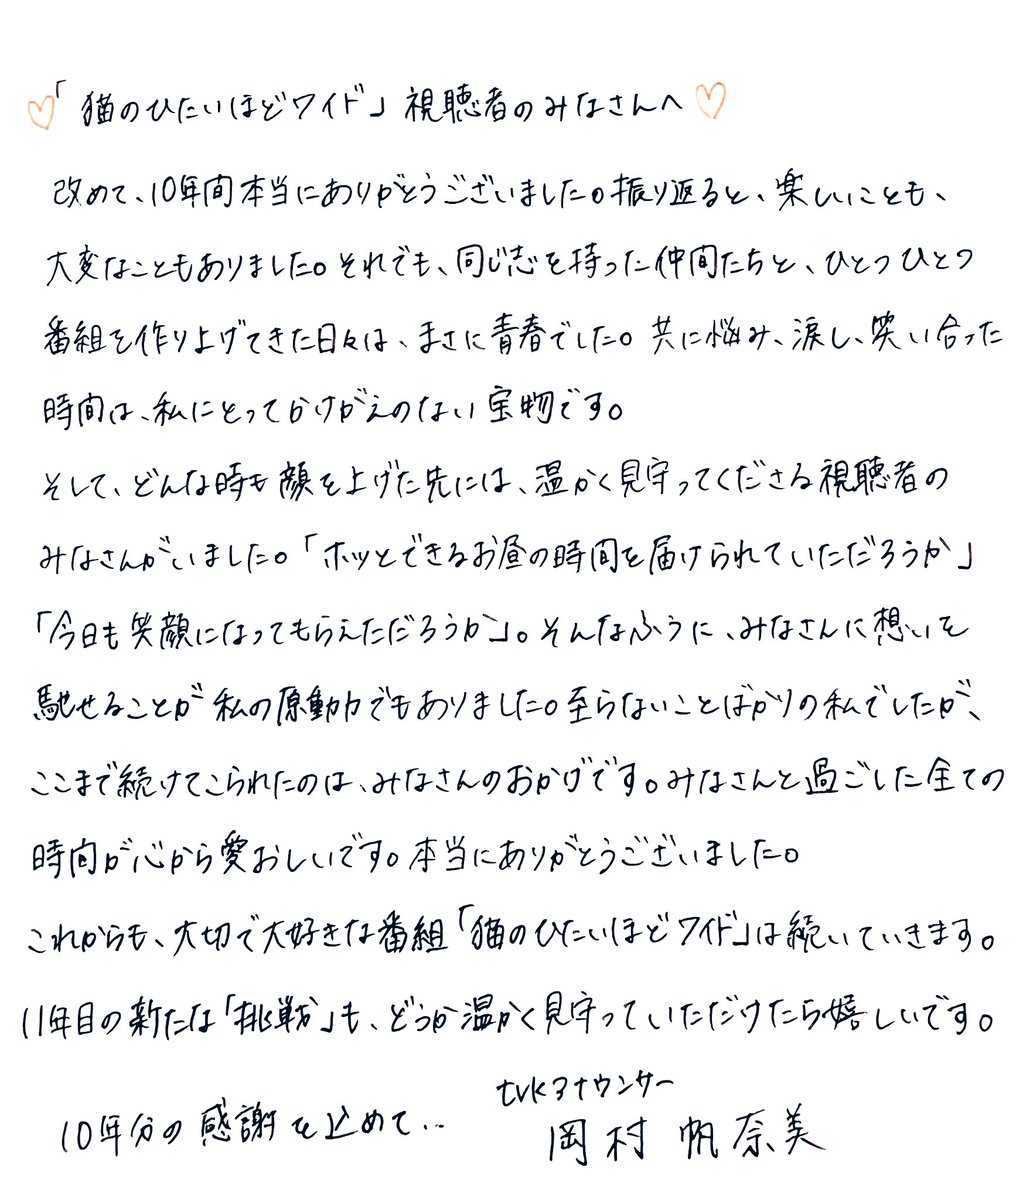 ♡「猫のひたいほどワイド」視聴者のみなさんへ♡
改めて、10年間本当にありがとうございました。振り返ると、楽しいことも、
大変なこともありました。それでも、同じ志を持った仲間たちと、ひとつひとつ
番組を作り上げてきた日々は、まさに青春でした。共に悩み、涙し、笑い合った
時間は、私にとってかけがえのない宝物です。
そして、どんな時も顔を上げた先には、温かく見守ってくださる視聴者の
みなさんがいました。「ホッとできるお昼の時間を届けられていただろうか」
「今日も笑顔になってもらえただろうか」。そんなふうに、みなさんに想いを
馳せることが私の原動力でもありました。至らないことばかりの私でしたが、
ここまで続けてこられたのは、みなさんのおかげです。みなさんと過ごした全ての
時間が心から愛おしいです。本当にありがとうございました。
これからも、大切で大好きな番組「猫のひたいほどワイド」は続いていきます。
11年目の新たな「挑戦」も、どうか温かく見守っていただけたら嬉しいです。
10年分の感謝を込めて‥
tvkアナウンサー
岡村 帆奈美